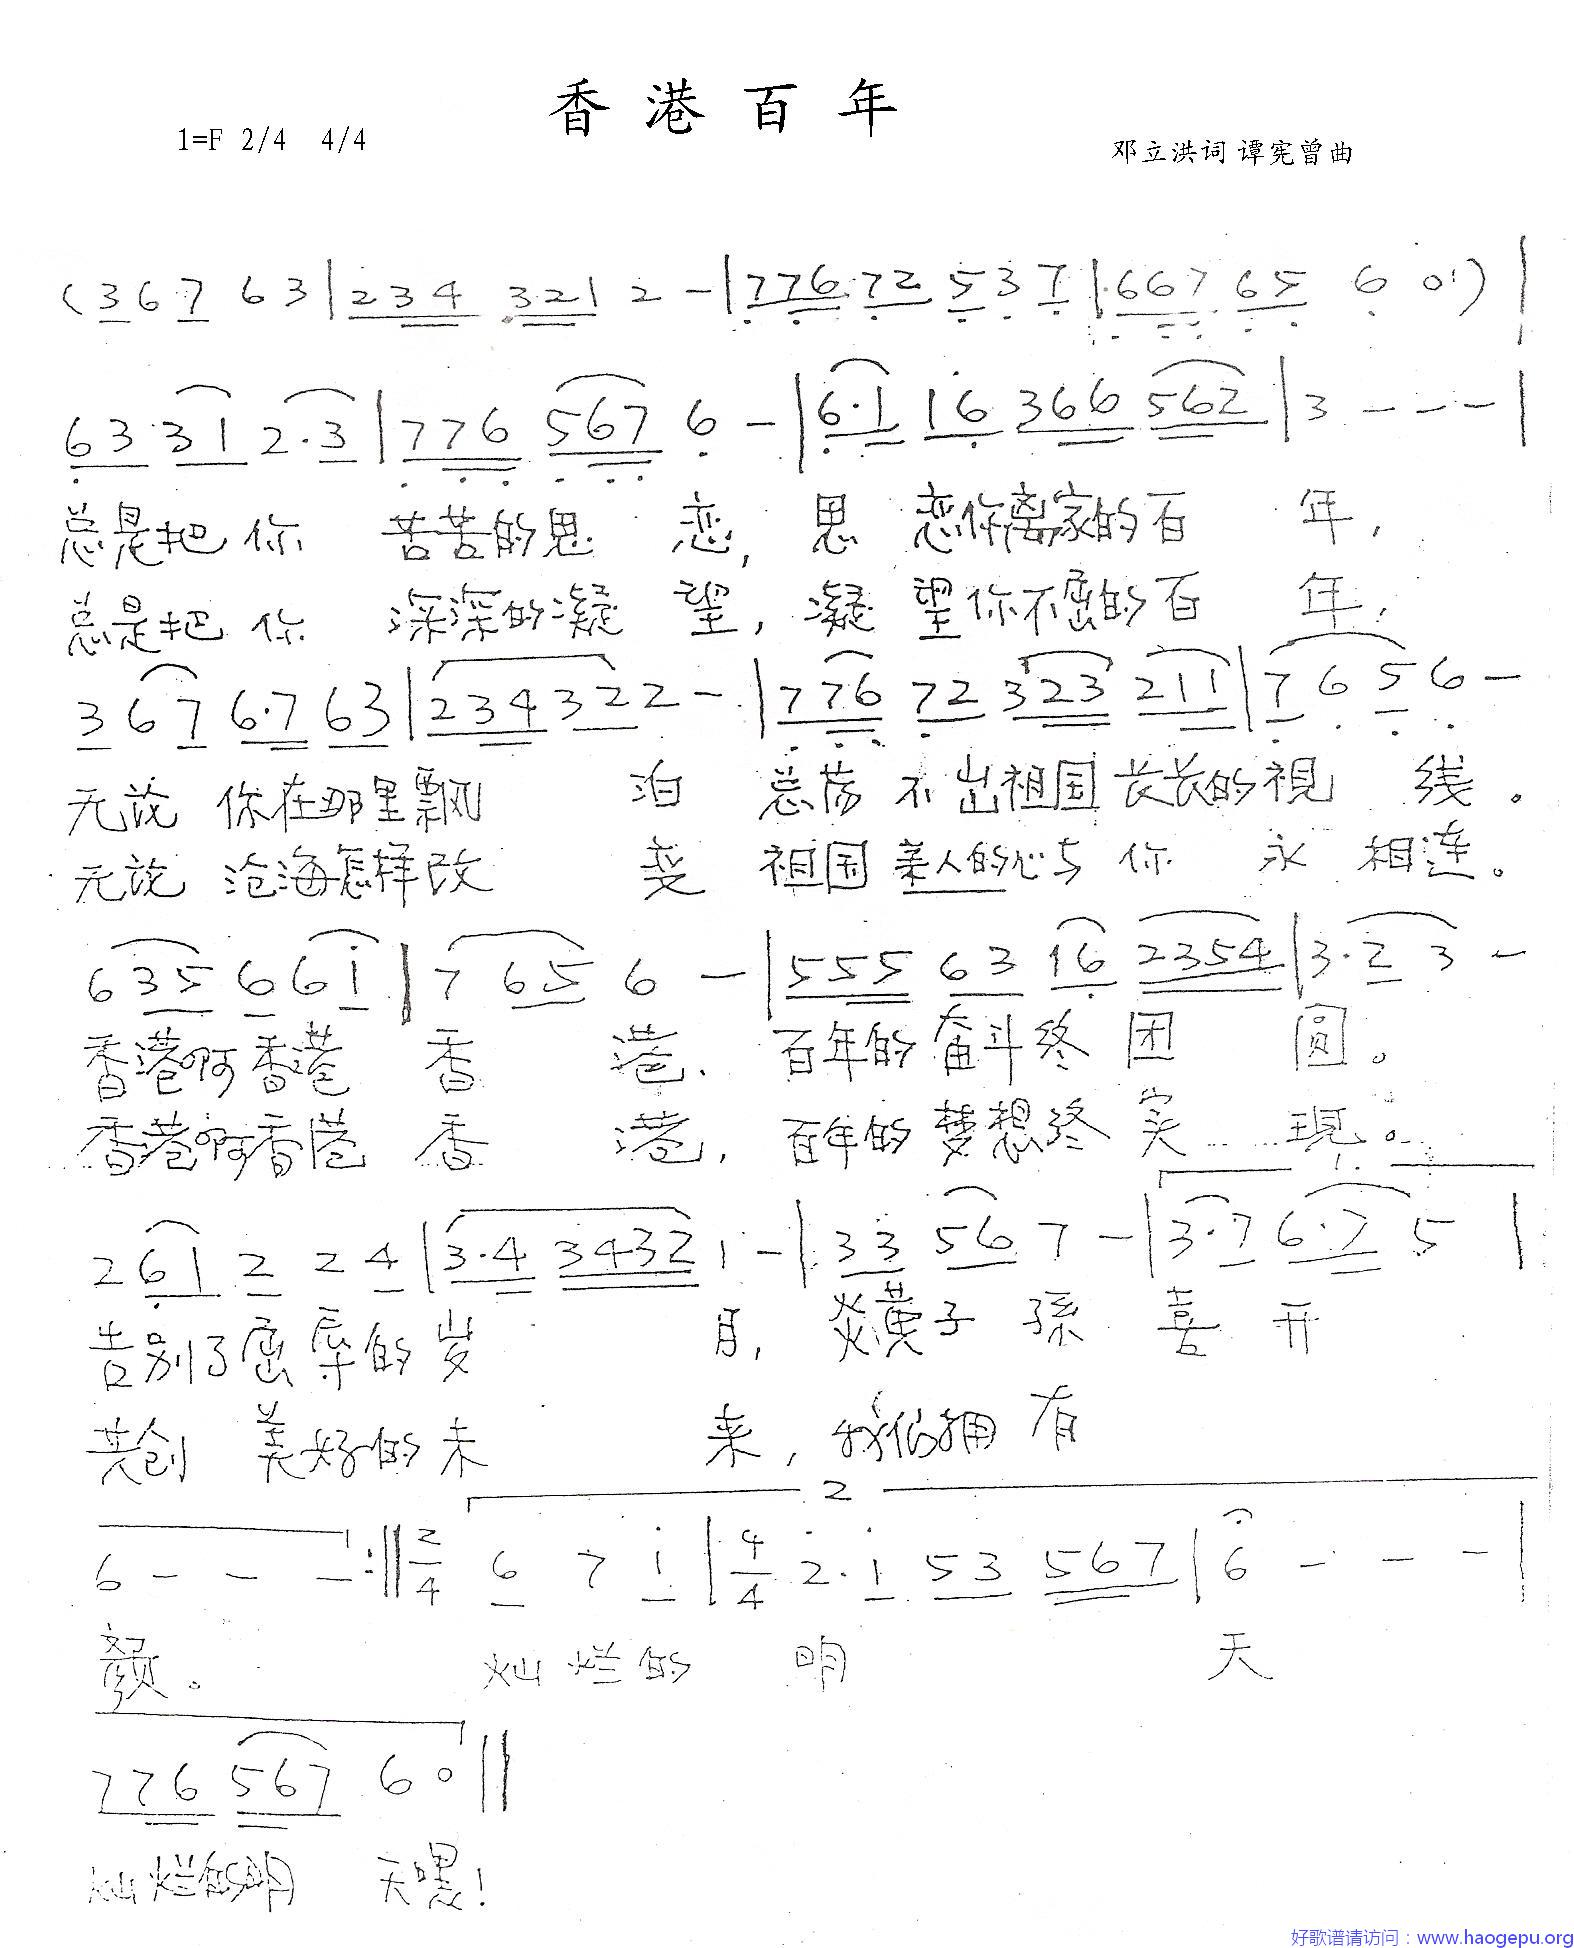 香港百年
1=F 2/4 4/4
邓立洪词 谭宪曾曲
(3 6 7 6 3 | 2 3 4 3 2 1 2 - | 7 7 6 7 2 5 3 7 | 6 6 7 6 5 6 0 ) |
6 3 3 1 2 · 3 | 7 7 6 5 6 7 6 - | 6 · 1 1 6 3 6 6 5 6 2 | 3 - - - |
总是把你 苦苦的思 恋, 思 恋你离家的百 年,
总是把你 深深的凝 望, 凝 望你不屈的百 年,
3 6 7 6 · 7 6 3 | 2 3 4 3 2 2 - | 7 7 6 7 2 3 2 3 2 1 1 | 7 6 5 6 -
无论 你在那里飘 泊 总荡不出祖国长长的視 线。
无论 沧海怎样改 变 祖国亲人的心与你 永 相连。
6 3 5 6 6 i | 7 6 5 6 - | 5 5 5 6 3 1 6 2 3 5 4 | 3 · 2 3 -
香港啊香港 香 港. 百年的奋斗终 团 圆。
香港啊香港 香 港, 百年的梦想终 实 現。
1.
2 6 1 2 2 4 | 3 · 4 3 4 3 2 1 - | 3 3 5 6 7 - | 3 · 7 6 · 7 5 |
告别了屈辱的岁 月, 炎黄子 孫 喜 开
共创 美好的未 来, 我们拥 有
2
6 - - - :‖ 2/4 6 7 i | 4/4 2 · i 5 3 5 6 7 | 6 - - - |
颜。 灿烂的 明 天
7 7 6 5 6 7 6 0 ‖
灿烂的明 天嘿!
好歌谱请访问：www.haogepu.org